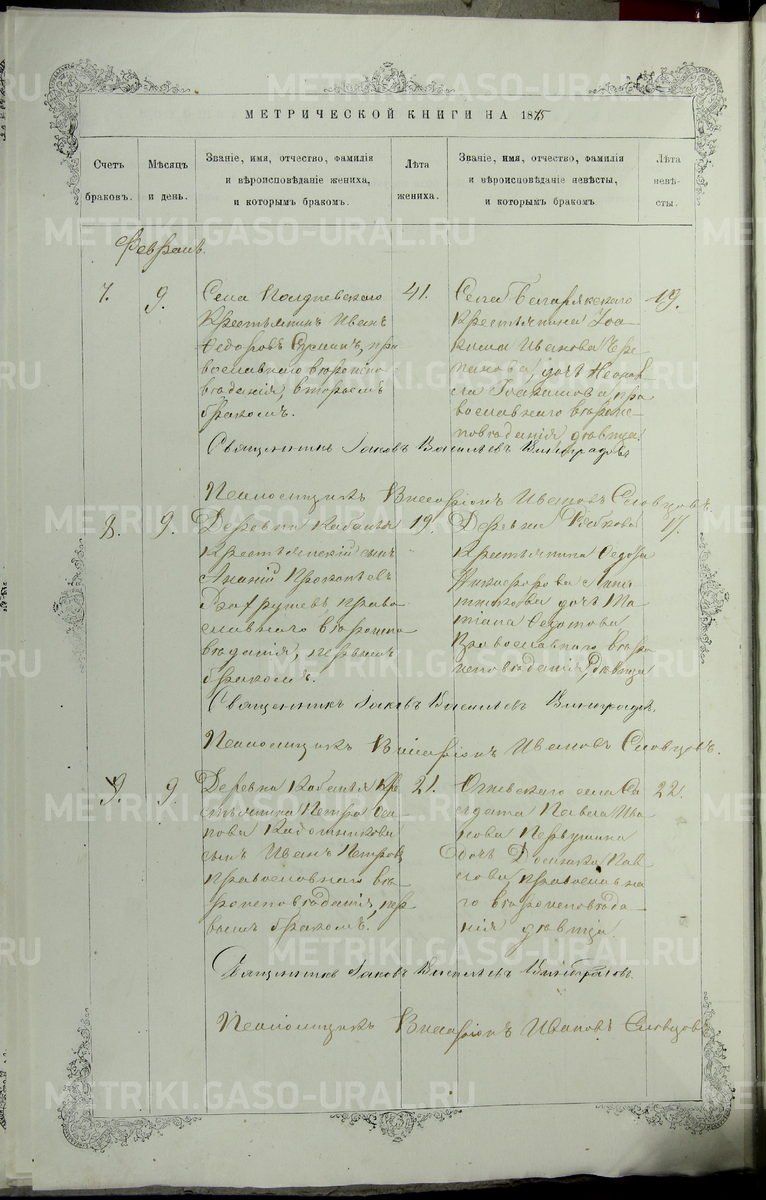 МЕТРИЧЕСКОЙ КНИГИ НА 1875
Счетъ браковъ.
Мѣсяцъ и день.
Званіе, имя, отчество, фамилія
и вѣроисповѣданіе жениха,
и которымъ бракомъ.
Лѣта жениха.
Званіе, имя, отчество, фамилія
и вѣроисповѣданіе невѣсты,
и которымъ бракомъ
Лѣта невѣсты.
Февраль.
7.
9.
Села Полдневскаго
Крестьянинъ Иванъ
Ѳедоровъ пра
вославнаго вѣроиспо
вѣданія, вторымъ
бракомъ.
41.
Села Багарякскаго
Крестьянина Іоа
кима Иванова
дочь
Іоакимова, пра
вославнаго вѣроис
повѣданія дѣвица.
19.
Священникъ Іаковъ Васильевъ Виноградовъ
Псаломщикъ Виссаріонъ Ивановъ Словцовъ.
8.
9.
Деревни Кабанья
крестьянскій сынъ
Ананій Прокопьевъ
право
славнаго вѣроиспо
вѣданія, первымъ
бракомъ.
19.
Деревни
крестьянина Ѳедота
Никифорова
дочь Та
тіана Ѳедотова
Православнаго вѣро
исповѣданія дѣвица
17.
Священникъ Іаковъ Васильевъ Виноградовъ
Псаломщикъ Виссаріонъ Ивановъ Словцовъ.
9.
9.
Деревни Кабанья Кре
стьянина Петра
сынъ Иванъ Петровъ
православнаго вѣ
роисповѣданія, пер
вымъ бракомъ.
21.
Огневскаго села Со
лдата Павла Ива
нова Первушина
дочь Пав
лова, православна
го вѣроисповѣда
нія дѣвица
22.
Священникъ Іаковъ Васильевъ Виноградовъ.
Псаломщикъ Виссаріонъ Ивановъ Словцовъ
METRIKI.GASO-URAL.RU